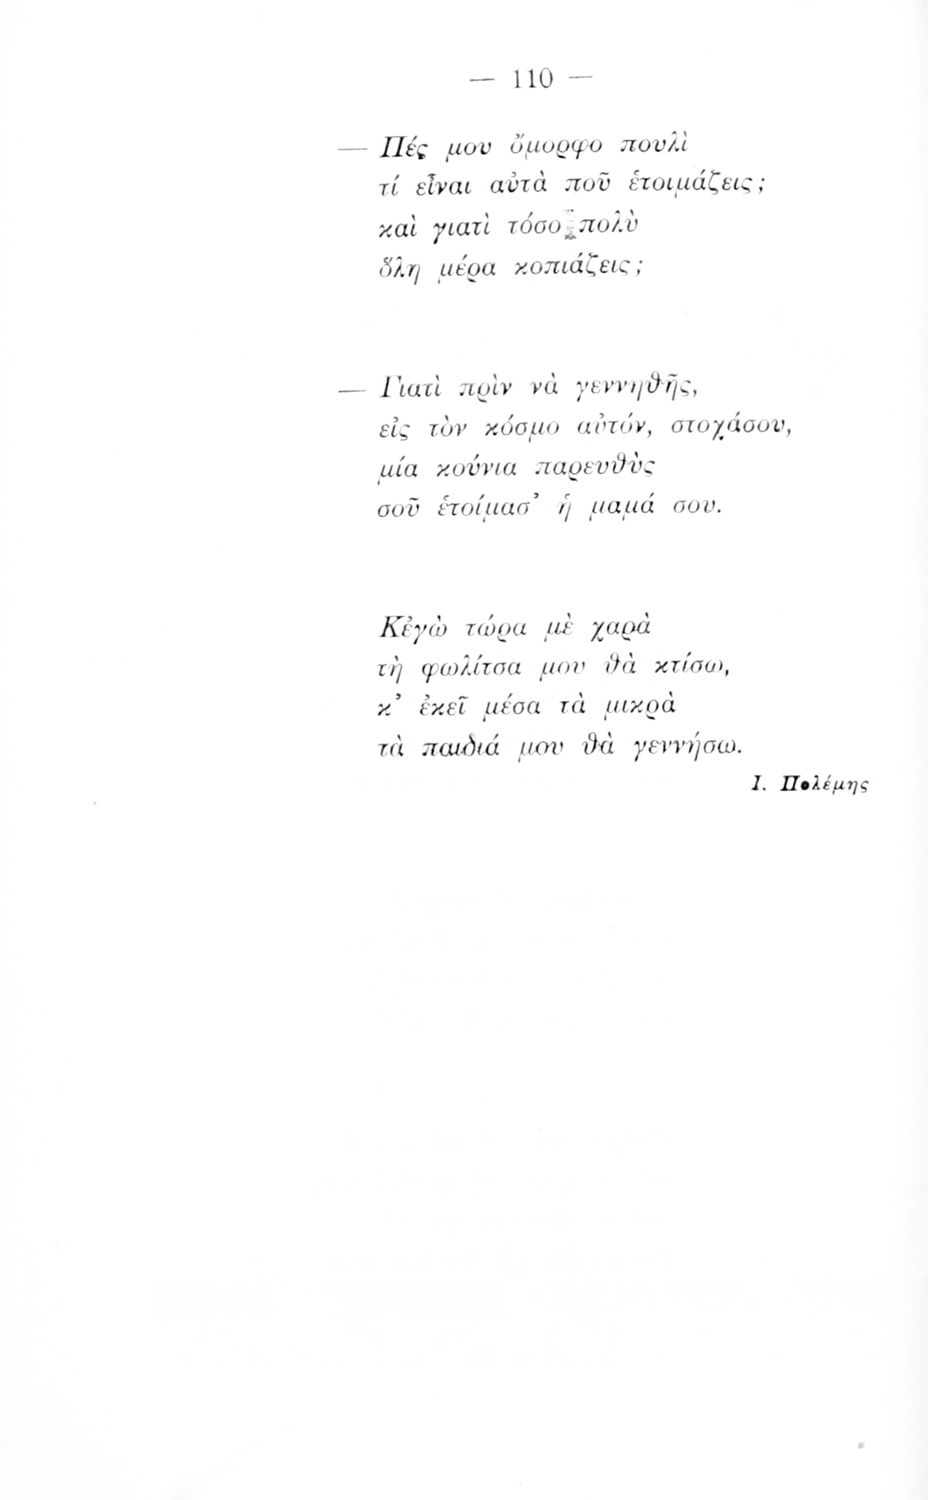 — 110 —
— Πές μου ὄμορφο πουλὶ
τί εἶναι αὐτὰ ποῦ ἑτοιμάζεις;
καὶ γιατὶ τόσο πολὺ
ὅλη μέρα κοπιάζεις;
— Γιατὶ πρὶν νὰ γεννηθῆς,
εἰς τὸν κόσμο αὐτόν, στοχάσου,
μία κούνια παρευθὺς
σοῦ ἑτοίμασ᾿ ἡ μαμά σου.
Κἐγὼ τώρα μὲ χαρὰ
τὴ φωλίτσα μου θὰ κτίσω,
κ᾿ ἐκεῖ μέσα τὰ μικρὰ
τὰ παιδιά μου θὰ γεννήσω.
Ι. Πολέμης